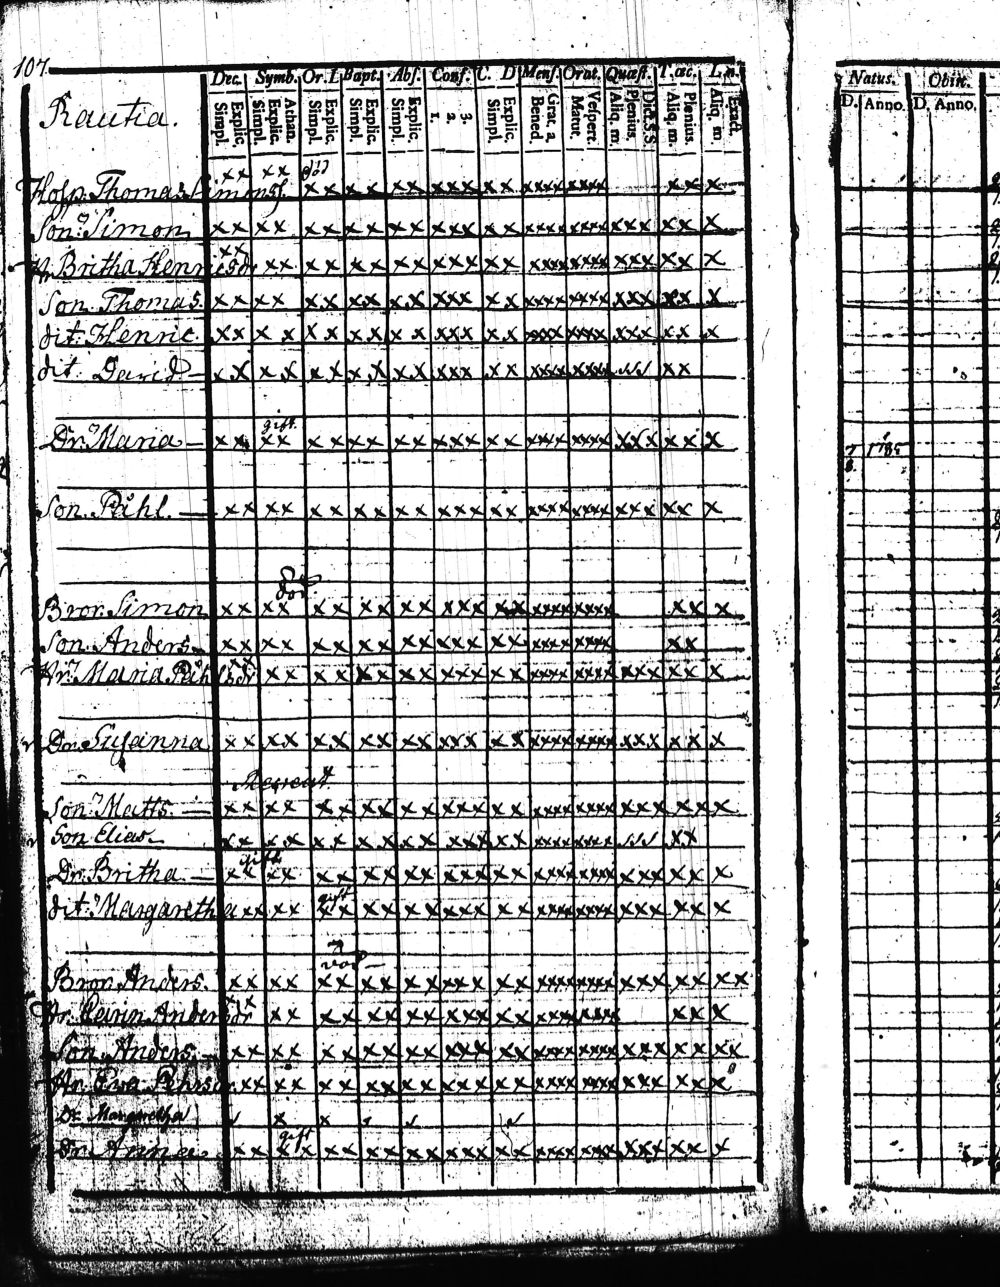 107.
Dec. Symb. Or. D Bapt. Abs. Conf. C. D Mens. Orat. Quæst. T. œc. L. n.
Explic. Simpl. Athan. Explic. Simpl. Explic. Simpl. Explic. Simpl. Explic. Simpl. 3. 2. 1. Explic. Simpl. Grat. a. Bened. Vespert. Matut. Dict. S.S Plenius. Aliq. m. Plenius. Aliq. m. Exact. Aliq. m
Rautia.
död
Hosp. Thomas Simonss. xx xx xx xx xx xxx xx xxxx xxxx xx x
Son Simon xx xx xx xx xx xxx xx xxxx xxxx xxx xx x
Hr Britha Henricsdr xx xx xx xx xx xxx xx xxxx xxxx xxx xx x
Son Thomas xx xx xx xx xx xxx xx xxxx xxxx xxx xx x
dit. Henric xx xx xx xx xx xxx xx xxxx xxxx xxx xx x
dit. David xx xx xx xx xx xxx xx xxxx xxxx xx
gift
Dr Maria xx xx xx xx xx xxx xx xxxx xxxx xxx xx x
Son Påhl. xx xx xx xx xx xxx xx xxxx xxxx xxx xx x
Bror Simon xx xx xx xx xx xxx xx xxxx xxxx xx x
Son Anders xx xx xx xx xx xxx xx xxxx xxxx xx
Hr Maria Påhlsdr xx xx xx xx xx xxx xx xxxx xxxx xxx xx x
Dr Susanna xx xx xx xx xx xxx xx xxxx xxxx xxx xx x
Son Matts. xx xx xx xx xx xxx xx xxxx xxxx xxx xx x
Son Elias xx xx xx xx xx xxx xx xxxx xxxx xx
gift
Dr Britha xx xx xx xx xx xxx xx xxxx xxxx xxx xx x
gift
dit. Margaretha xx xx xx xx xx xxx xx xxxx xxxx xxx xx x
Bror Anders. xx xx xx xx xx xxx xx xxxx xxxx xxx xx xx
Hr Carin Andersdr xx xx xx xx xx xxx xx xxxx xxxx xx x
Son Anders xx xx xx xx xx xxx xx xxxx xxxx xxx xx xx
Hr Eva Pehrsdr xx xx xx xx xx xxx xx xxxx xxxx xxx xx x
Dr Margaretha
gift
Dr Anna xx xx xx xx xx xxx xx xxxx xxxx xxx xx x
Natus. Obiit.
D. Anno. D. Anno.
7/8. 1785